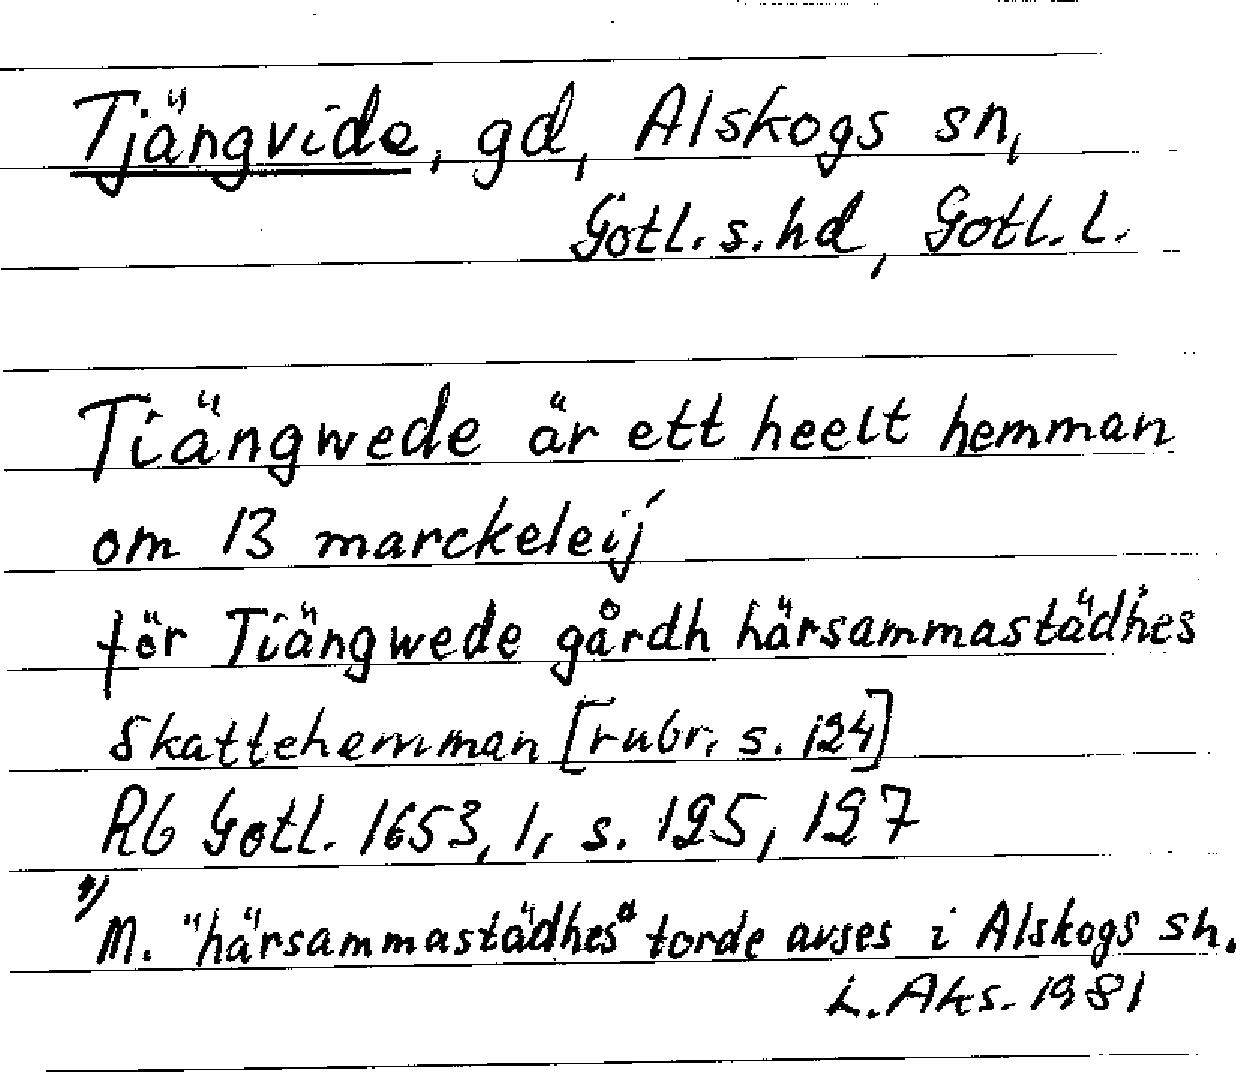 Tjängvide, gd, Alskogs sn,
Gotl. s. hd, Gotl. l.
Tiängwede är ett heelt hemman
om 13 marckeleij
för Tiängwede gårdh härsammastädhes
Skattehemman [rubr. s. 124]
Rb Gotl. 1653, 1, s. 125, 127
M. "härsammastädhes" torde avses i Alskogs sn.
L. Aks. 1981